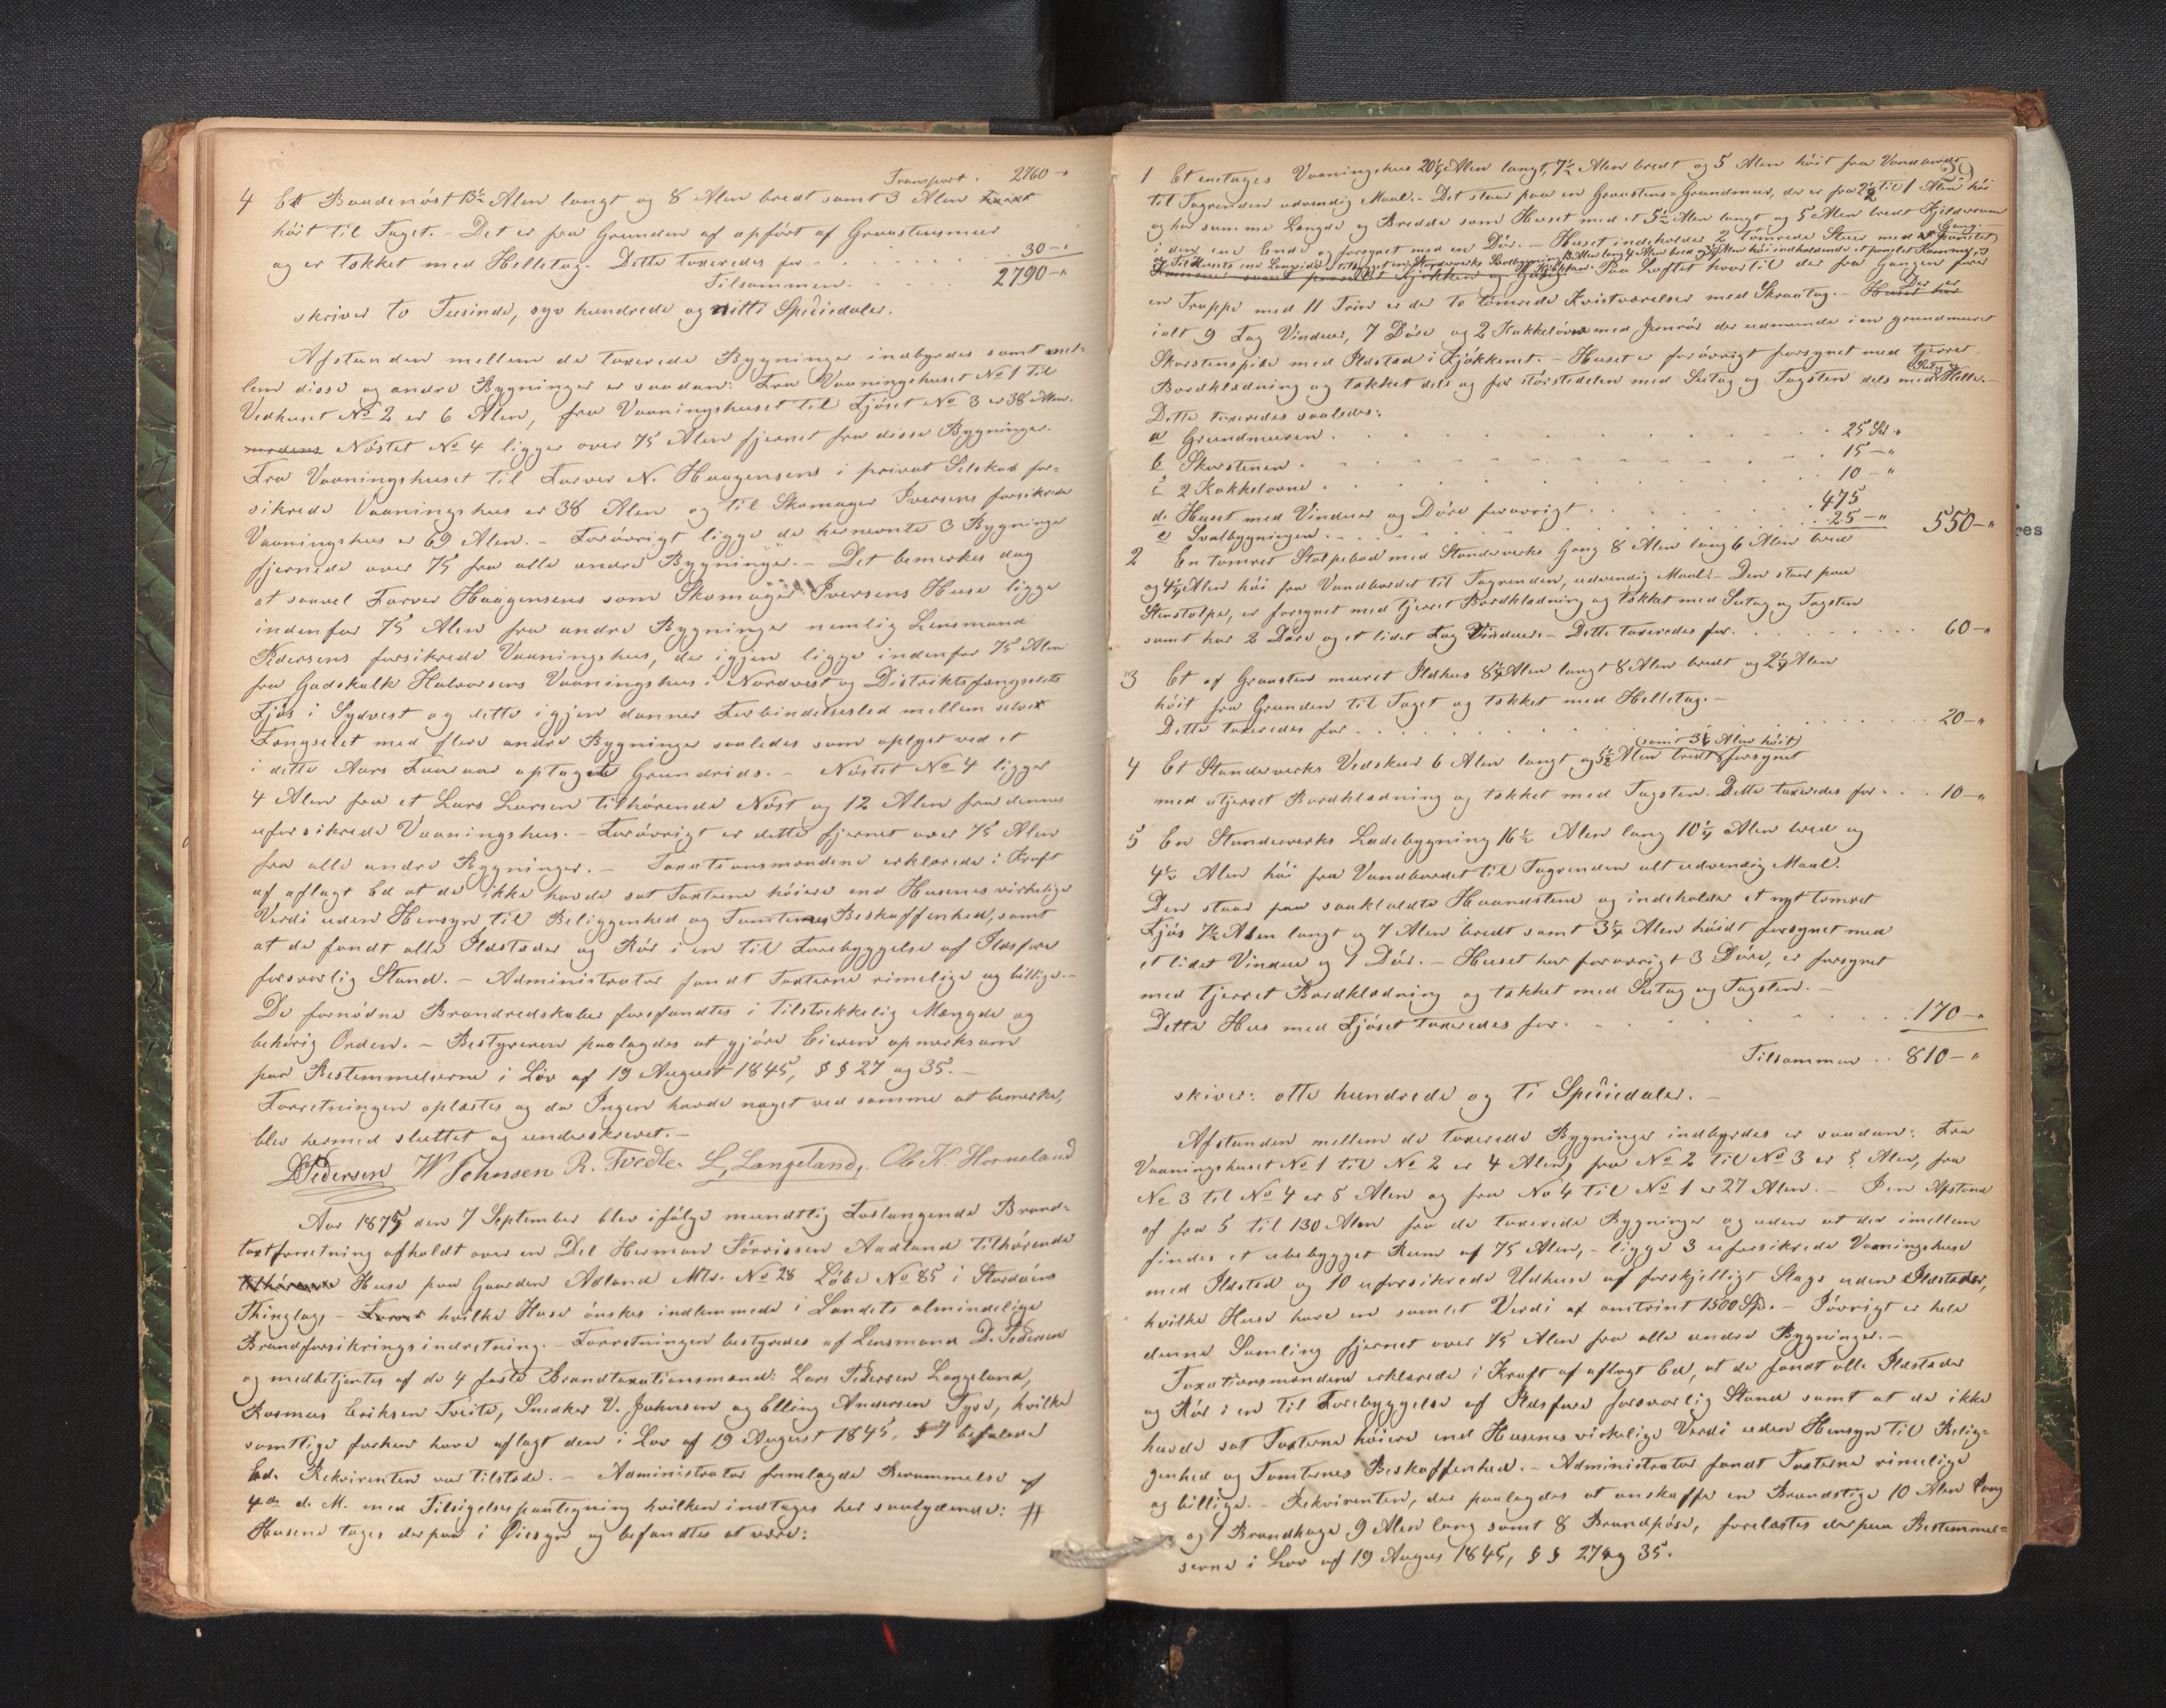 Transport . 2760 -"
4 Et Baadenøst 13½ Alen langt og 8 Alen bredt samt 3 Alen
høit til Taget. - Det er fra Grunden af opført af Graasteensmuur
og er tækket med Helletag. Dette taxeredes for . . . 30 -"
Tilsammen. . . . 2790 -"
skriver to Tusinde, syv hundrede og nitti Speciedaler.
Afstanden mellem de taxerede Bygninger indbyrdes samt mel-
lem disse og andre Bygninger er saadan: Fra Vaaningshuset No 1 til
Vedhuset No 2 er 6 Alen, fra Vaaningshuset til Fjøset No 3 er 38 Alen.
medens Nøstet No 4 ligger over 75 Alen fjernet fra disse Bygninger.
Fra Vaaningshuset til Farver N. Haagensens i privat Selskab for-
sikrede Vaaningshus er 38 Alen og til Skomager Iversens forsikrede
Vaaningshus er 69 Alen. - Forøvrigt ligge de hernevnte 3 Bygninger
fjernede over 75 fra alle andre Bygninger. - Det bemerkes dog
at saavel Farver Haagensens som Skomager Iversens Huse ligge
indenfor 75 Alen fra andre Bygninger nemlig Lensmand
Pedersens forsikrede Vaaningshus, der igjen ligge indenfor 75 Alen
fra Gadskalk Halvorsens Vaaningshus i Nordvest og Distriktsfængselets
Fjøs i Sydvest og dette igjen danner Forbindelsesled mellem selve
Fængselet med flere andre Bygninger saaledes som oplyst ved et
i dette Aars Januar optaget Grundrids. - Nøstet No 4 ligger
4 Alen fra et Lars Larsen tilhørende Nøst og 12 Alen fra dennes
uforsikrede Vaaningshus. - Forøvrigt er dette fjernet over 75 Alen
fra alle andre Bygninger. - Taxationsmændene erklærede i Kraft
af aflagt Ed at de ikke havde sat Taxterne høiere end Husenes virkelige
Verdi uden Hensyn til Beliggenhed og Tomternes Beskaffenhed, samt
at de fandt alle Ildsteder og Rør i en til Forebyggelse af Ildsfare
forsvarlig Stand. - Administrator fandt Taxterne rimelige og billige. -
De fornødne Brandredskaber forefandtes i tilstrekkelig Mængde og
behørig Orden. - Bestyreren paalagdes at gjøre Eieren opmerksom
paa Bestemmelserne i Lov af 19 August 1845, § § 27 og 35. -
Forretningen oplæstes og da Ingen havde noget ved samme at bemerke,
blev hermed sluttet og underskrevet. -
D Pedersen W Johnsen R. Tvedte. L, Langeland, Ole K. Horneland
Aar 1875 den 7 September blev ifølge mundtlig Forlangende Brand-
taxtforretning afholdt over en Del Herman Tørrissen Aadland tilhørende
tilhørende Huse paa Gaarden Adland Mtr. No 28 Løbe No 85 i Stordøens
Thinglag, - hvilke Huse ønskes indlemmede i Landets almindelige
Brandforsikringsindretning. - Forretningen bestyredes af Lensmand D. Pedersen
og medbetjentes af de 4 faste Brandtaxationsmænd: Lars Pedersen Langeland,
Rasmus Eriksen Tveite, Snedker V. Johnsen og Elling Andersen Tyse, hvilke
samtlige forhen have aflagt den i Lov af 19 August 1845, § 7 befalede
Ed. Rekvirenten var tilstede. - Administrator fremlagde Berammelse af
4de d. M. med Tilsigelsespaategning hvilken indtages her saalydende: #
Husene toges derpaa i Øiesyn og befandtes at være:
29
1 Et enetages Vaaningshus 20¼ Alen langt, 7½ Alen bredt og 5 Alen høit fra Vandbordet
til Tagrenden udvendig Maal. - Det staar paa en Graastens-Grundmur, der er fra 2½ til 1 Alen høi
og har samme Længde og Bredde som Huset med et 5½ Alen langt og 5 Alen bredt Kjelderrum
i den ene Ende og forsynet med en Dør. - Huset indeholder 2 tømrede Stuer med
en Trappe med 11 Trin er der to tømrede Kvistværelser med Skraatag. - Der er
ialt 9 Fag Vinduer, 7 Døre og 2 Kakkelovne med Jernrør der udmunde i en grundmuret
Skorstenspibe med Ildsted i Kjøkkenet. - Huset er forøvrigt forsynet med tjerret
Bordklædning og tækket dels og for størstedelen med Sutag og Tagsten dels med Helle. -
Dette taxeredes saaledes:
a Grundmuren . . . 25 Spd "
b Skorstenen . . . 15 -"
c 2 Kakkelovne . . . 10 -"
d. Huset med Vinduer og Døre forøvrigt . . . 475
e Svalbygningen . . . 25 -" 550 -"
2 En tømret Stolpebod med Standerverks Gang 8 Alen lang 6 Alen bred
og 4¼ Alen høi fra Vandbordet til Tagrenden, udvendig Maal. - Den staar paa
Stenstolper, er forsynet med tjerret Bordklædning og tækket med Sutag og Tagsten
samt har 2 Døre og et lidet Fag Vinduer. - Dette taxeredes for . . . 60 -"
3 Et af Graasten muret Ildhus 8¼ Alen langt 8 Alen bredt og 2¼ Alen
høit fra Grunden til Taget og tækket med Helletag. -
Dette taxeredes for . . . 20 -"
4 Et Standerverks Vedskur 6 Alen langt og 5½ Alen bredt samt 3¼ Alen høit forsynet
med utjerret Bordklædning og tækket med Tagsten. Dette taxeredes for . . . 10 -"
5 En Standerverks Ladebygning 16½ Alen lang 10¼ Alen bred og
4½ Alen høi fra Vandbordet til Tagrenden alt udvendig Maal.
Den staar paa saakaldte Haandstene og indeholder et nyt tømret
Fjøs 7½ Alen langt og 7 Alen bredt samt 3¼ Alen høidt forsynet med
et lidet Vindue og 1 Dør. - Huset har forøvrigt 3 Døre, er forsynet
med tjerret Bordklædning og tækket med Sutag og Tagsten. -
Dette Hus med Fjøset taxeredes for . . . 170 -"
Tilsammen . . 810 -"
skiver: otte hundrede og ti Speciedaler. -
Afstanden mellem de taxerede Bygninger indbyrdes er saadan: Fra
Vaaningshuset No 1 til No 2 er 4 Alen, fra No 2 til No 3 er 5 Alen, fra
No 3 til No 4 er 5 Alen og fra No 4 til No 1 er 27 Alen. - I en Afstand
af fra 5 til 130 Alen fra de taxerede Bygninger og uden at der imellem
findes et ubebygget Rum af 75 Alen, - ligge 3 uforsikrede Vaaningshuse
med Ildsted og 10 uforsikrede Udhuse af forskjelligt Slags uden Ildsteder,
hvilke Huse have en samlet Verdi af omtrint 1500 Spd. - Iøvrigt er hele
denne Samling fjernet over 75 Alen fra alle andre Bygninger. -
Taxationsmændene erklærede i Kraft af aflagt Ed, at de fandt alle Ildsteder
og Rør i en til Forebyggelse af Ildsfare forsvarlig Stand samt at de ikke
havde sat Taxterne høiere end Husenes virkelige Verdi uden Hensyn til Belig-
genhed og Tomternes Beskaffenhed. - Administrator fandt Taxterne rimelige
og billige. - Rekvirenten, der paalagdes at anskaffe en Brandstige 10 Alen lang
og 1 Brandhage 9 Alen lang samt 8 Brandpøse, forelæstes derpaa Bestemmel-
serne i Lov af 19 Augus 1845, § § 27 og 35.